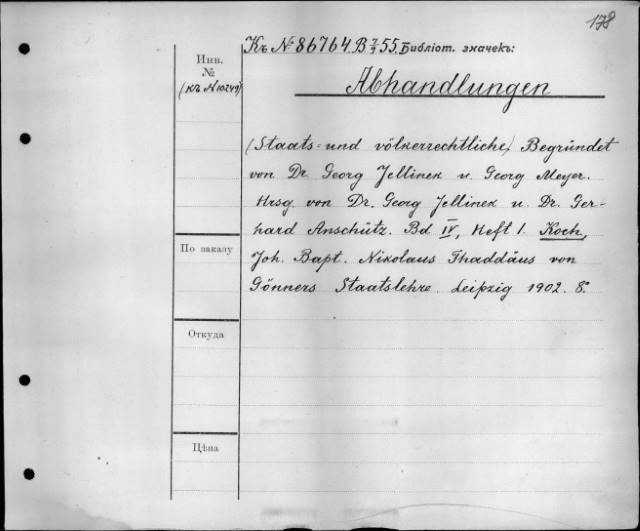 178
Къ № 86764. В 7/4 55. Библіот. значекъ:
Инв.
№
(къ N 10249)
Abhandlungen
(Staats= und völkerrechtliche) Begründet
von Dr. Georg Jellinek u. Georg Meyer.
Hrsg. von Dr. Georg Jellinek u. Dr. Ger-
hard Anschütz. Bd IV, Heft 1. Koch,
По заказу
Joh. Bapt. Nikolaus Thaddäus von
Gönners Staatslehre. Leipzig 1902. 8°.
Откуда
Цѣна